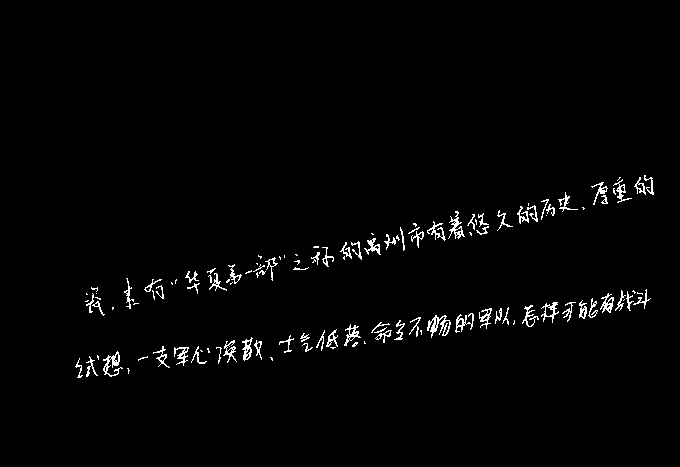 瓷，素有“华夏第一都”之称的禹州市有着悠久的历史、厚重的
试想，一支军心涣散、士气低落、命令不畅的军队，怎样可能有战斗